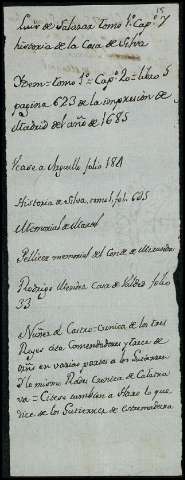 15
Luis de Salazar tomo 1º Capº 7
historia de la Casa de Silva
Ytem = tomo 1º = Capº 20 = libro 5
pagina 623 de la impresion de
Madrid del año de 1685
Vease a Arguello folio 184
Historia de Silva, folio 685
Memorial de
Pellicer memorial del Conde de Miranda
Rodrigo Mendez Casa de Valdes folio
33
Nuñez de Castro = Cronica de los tres
Reyes cita Comendadores y trece de
en varias partes a los Gutierrez
Y lo mismo Rades Cronica de Calatra
va = Citese tambien a Haro lo que
dice de los Gutierrez de Estremadura